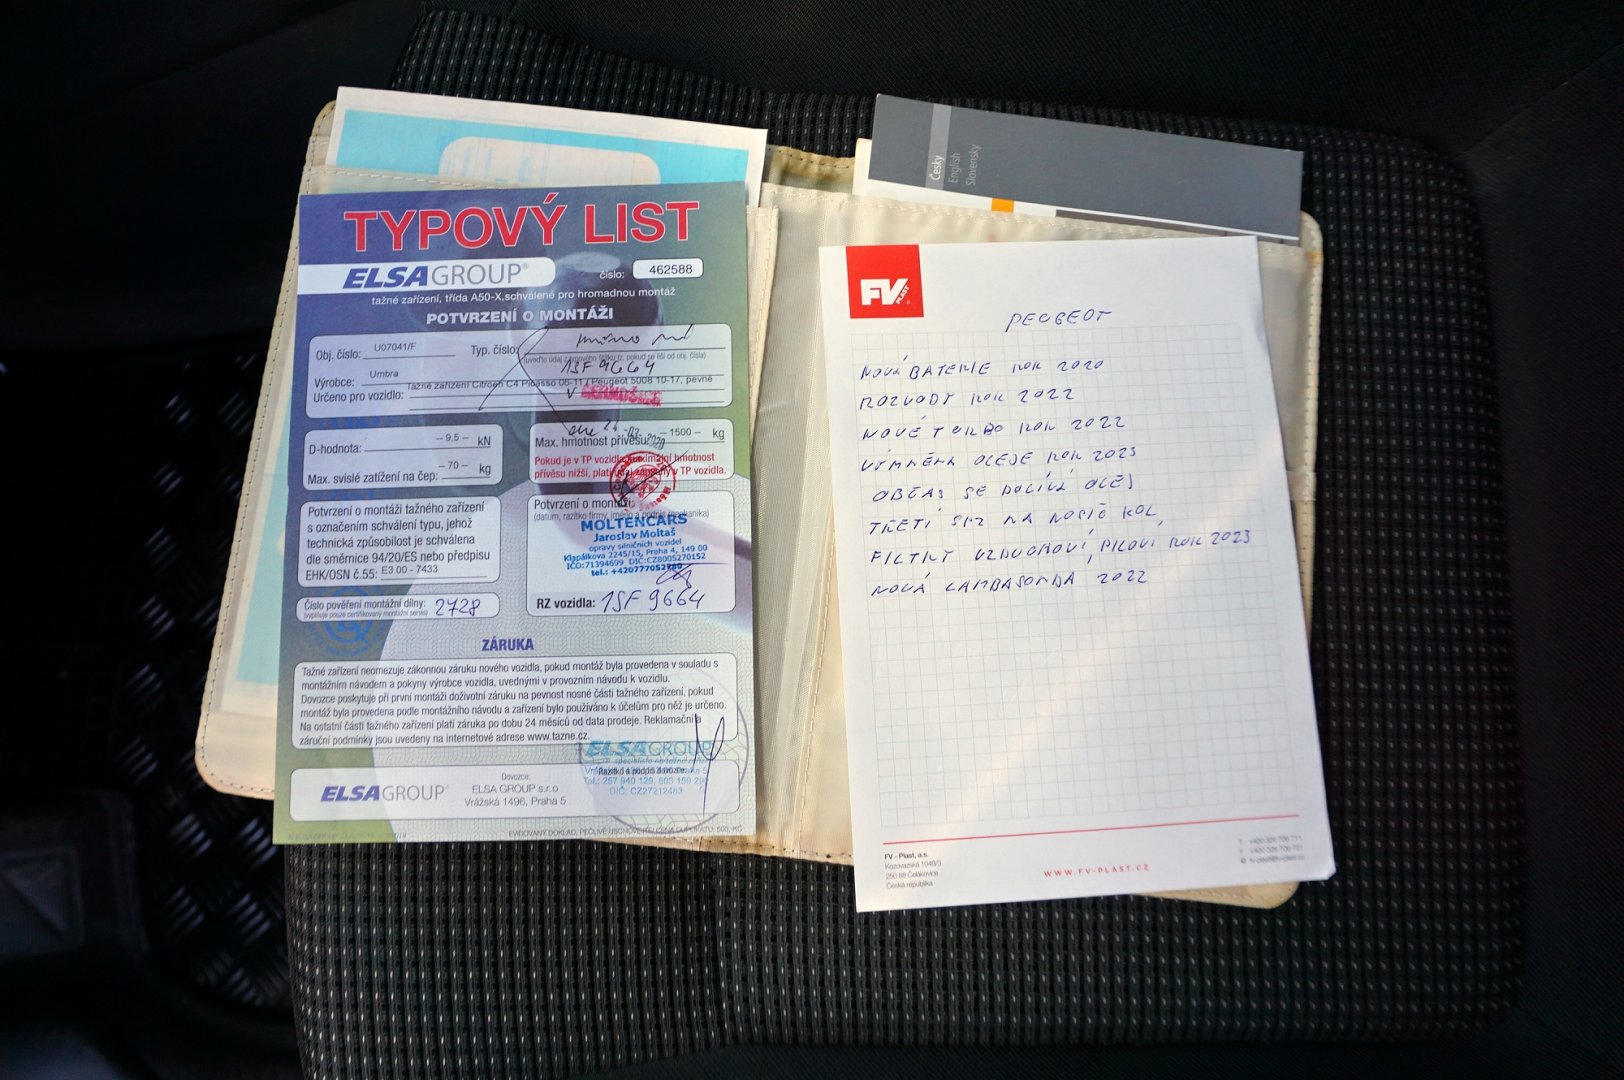 TYPOVÝ LIST
ELSAGROUP®
číslo: 462588
tažné zařízení, třída A50-X,schválené pro hromadnou montáž
POTVRZENÍ O MONTÁŽI
Obj. číslo: U07041/F
Typ. číslo:
1SF 9664
Výrobce: Umbra
Tažné zařízení Citroen C4 Picasso 06-11 / Peugeot 5008 10-17, pevné
Určeno pro vozidlo:
D-hodnota: – 9,5 – kN
Max. svislé zatížení na čep: – 70 – kg
Max. hmotnost přívěsu: – 1500 – kg
Pokud je v TP vozidla maximální hmotnost
přívěsu nižší, platí zápis v TP vozidla.
Potvrzení o montáži tažného zařízení
s označením schválení typu, jehož
technická způsobilost je schválena
dle směrnice 94/20/ES nebo předpisu
EHK/OSN č.55: E3 00 - 7433
Potvrzení o montáži:
(datum, razítko firmy, jméno a podpis mechanika)
MOLTENCARS
Jaroslav Moltaš
opravy silničních vozidel
Klapálkova 2245/15, Praha 4, 149 00
IČO:71394699 DIČ:CZ8005270152
tel.: +420777052
Číslo pověření montážní dílny: 2728
(vyplňuje pouze certifikovaný montážní servis)
RZ vozidla: 1SF 9664
ZÁRUKA
Tažné zařízení neomezuje zákonnou záruku nového vozidla, pokud montáž byla provedena v souladu s
montážním návodem a pokyny výrobce vozidla, uvednými v provozním návodu k vozidlu.
Dovozce poskytuje při první montáži doživotní záruku na pevnost nosné části tažného zařízení, pokud
montáž byla provedena podle montážního návodu a zařízení bylo používáno k účelům pro něž je určeno.
Na ostatní části tažného zařízení platí záruka po dobu 24 měsíců od data prodeje. Reklamační a
záruční podmínky jsou uvedeny na internetové adrese www.tazne.cz.
ELSAGROUP
Razítko a podpis dovozce:
Tel.: 257 940 129, 603 159
DIČ: CZ27212483
ELSAGROUP®
Dovozce:
ELSA GROUP s.r.o
Vrážská 1496, Praha 5
Česky
English
Slovensky
FV PLAST
PEUGEOT
NOVÁ BATERIE ROK 2020
ROZVODY ROK 2022
NOVÉ TURBO ROK 2022
VÝMNĚNA OLEJE ROK 2023
OBČAS SE DOLÍVÁ OLEJ
TŘETÍ SPZ NA NOSIČ KOL
FILTRY VZDUCHOVÍ PILOVÍ ROK 2023
NOVÁ LAMBASONDA 2022
FV - Plast, a.s.
Kozovazská 1049/3
250 88 Čelákovice
Česká republika
WWW.FV-PLAST.CZ
T +420 326 706 711
F +420 326 706 721
@ fv-plast@fv-plast.cz